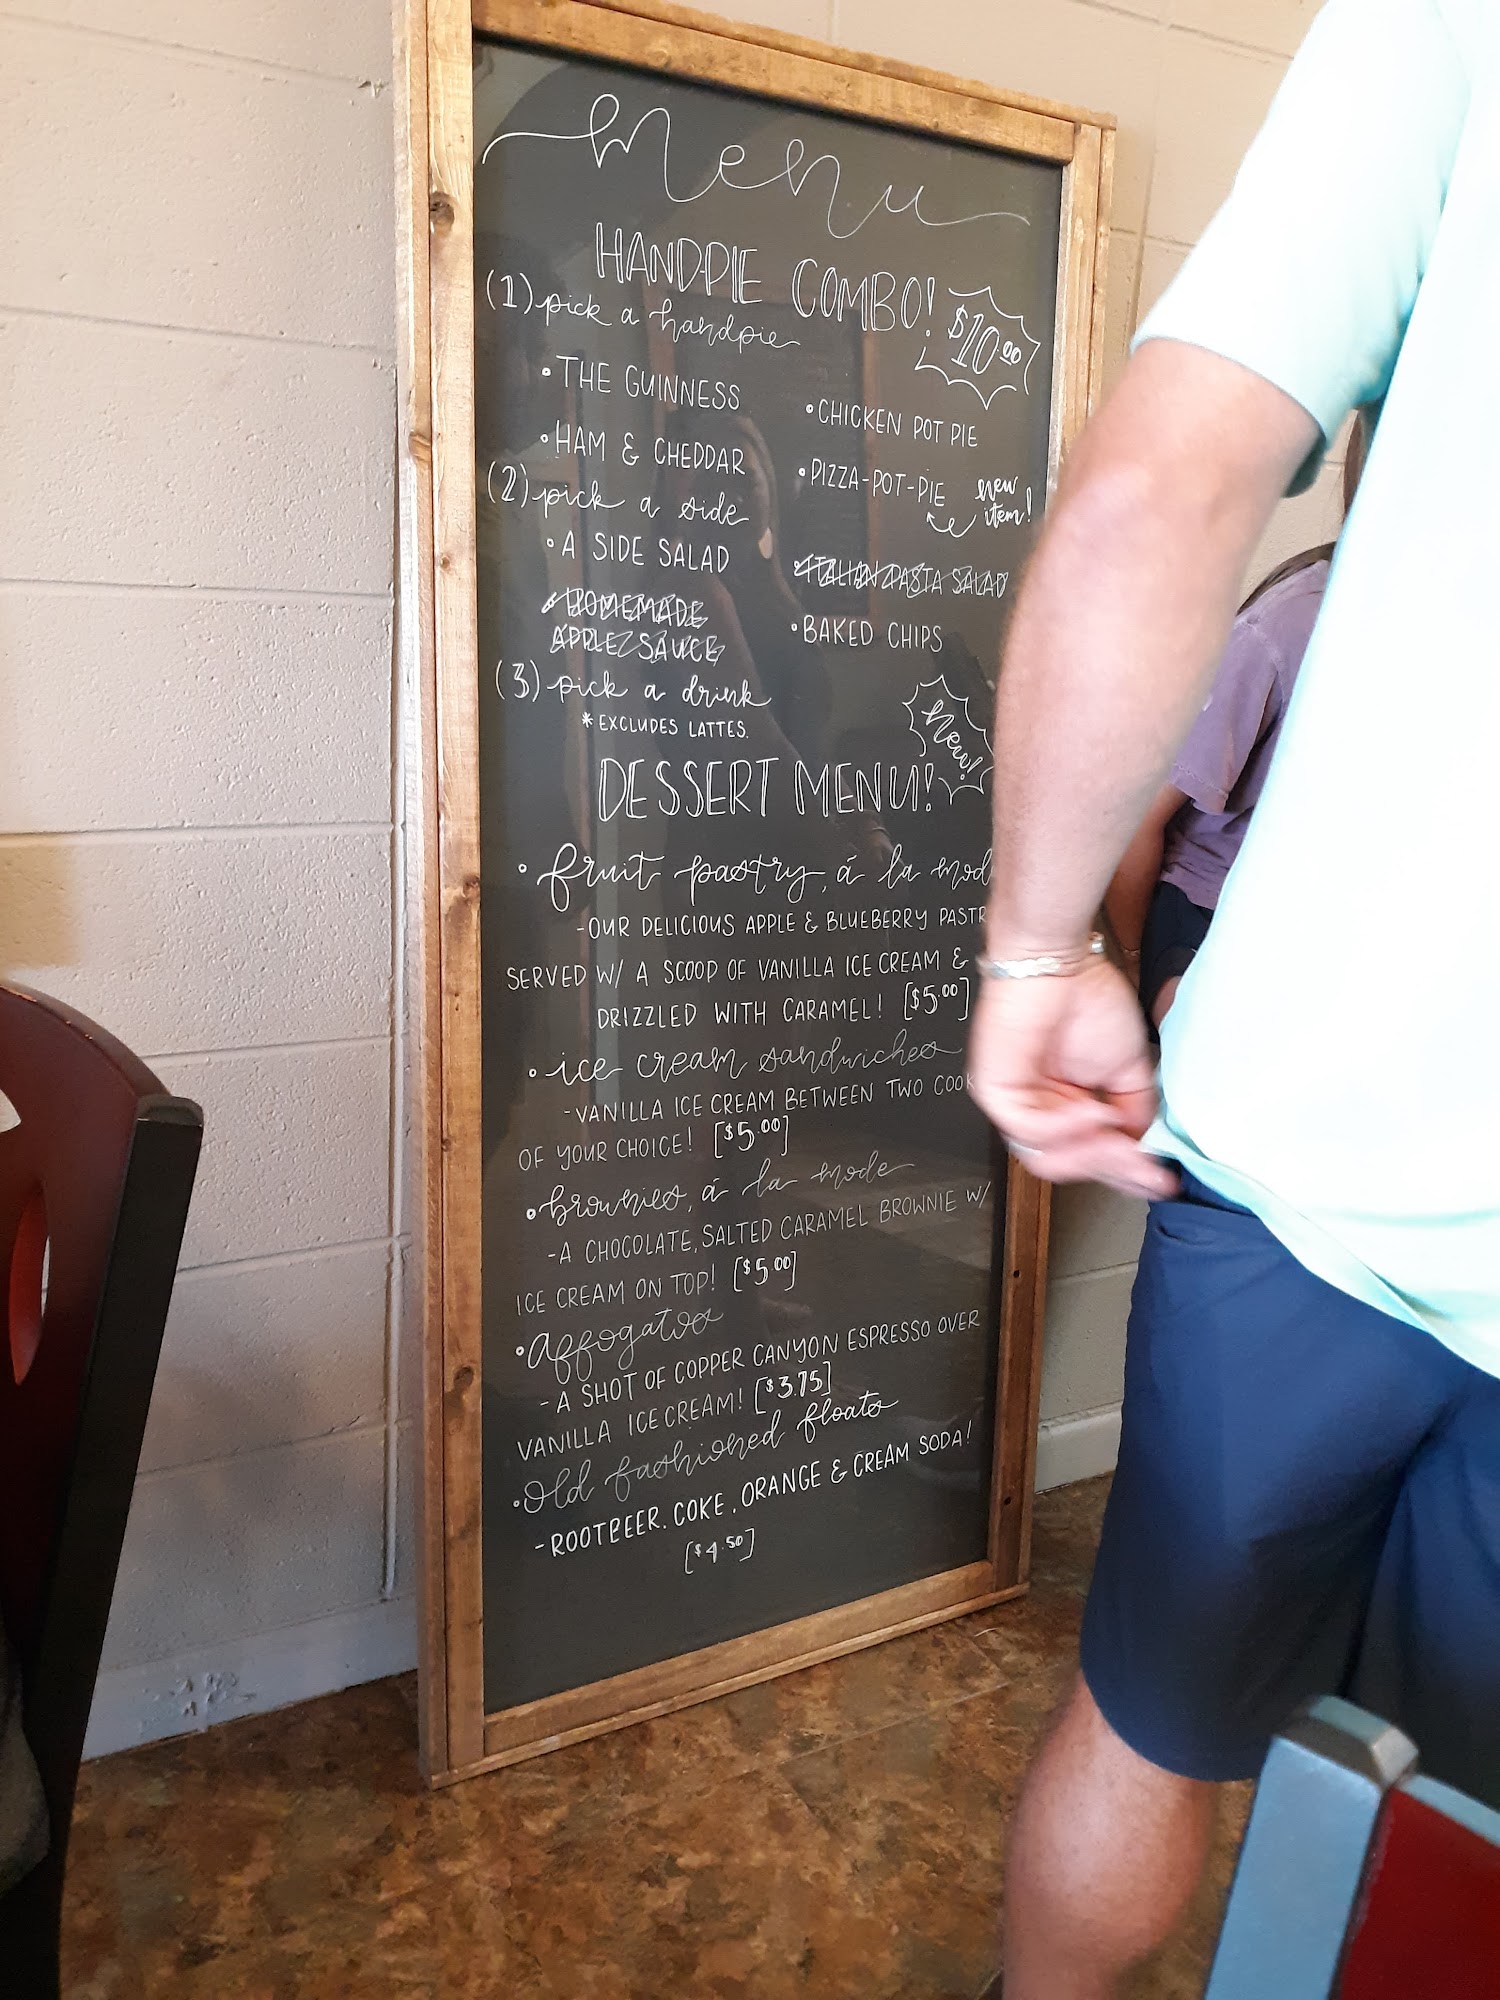 Menu
HANDPIE COMBO! $10.00
(1) pick a handpie
• THE GUINNESS
• CHICKEN POT PIE
• HAM & CHEDDAR
• PIZZA-POT-PIE new item!
(2) pick a side
• A SIDE SALAD
• ITALIAN PASTA SALAD
• HOMEMADE
APPLE SAUCE
• BAKED CHIPS
(3) pick a drink
* EXCLUDES LATTES.
New!
DESSERT MENU!
• fruit pastry, á la mod
- OUR DELICIOUS APPLE & BLUEBERRY PASTR
SERVED W/ A SCOOP OF VANILLA ICE CREAM &
DRIZZLED WITH CARAMEL! [$5.00]
• ice cream sandwiches
- VANILLA ICE CREAM BETWEEN TWO COOK
OF YOUR CHOICE! [$5.00]
• brownies, á la mode
- A CHOCOLATE, SALTED CARAMEL BROWNIE W/
ICE CREAM ON TOP! [$5.00]
• Affogatos
- A SHOT OF COPPER CANYON ESPRESSO OVER
VANILLA ICE CREAM! [$3.75]
• Old fashioned floats
- ROOTBEER, COKE, ORANGE & CREAM SODA!
[$4.50]